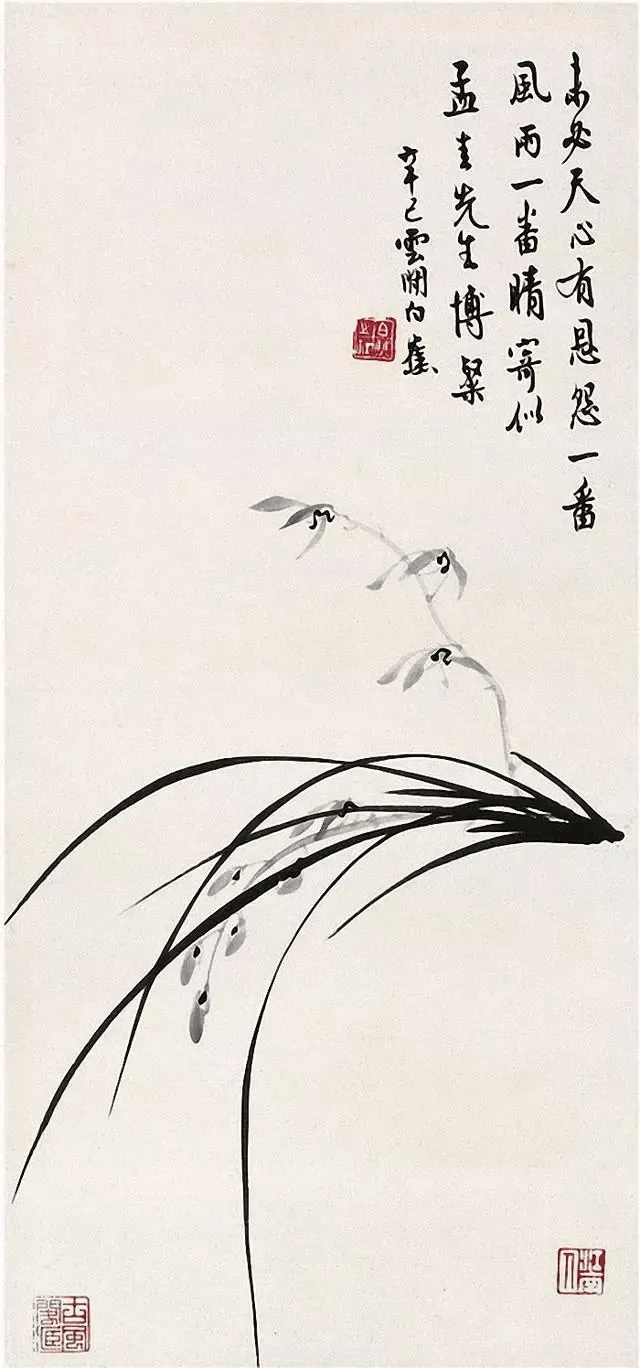 未必天心有恩怨一番
風雨一番晴寄似
孟先生博粲
辛巳雲間白蕉